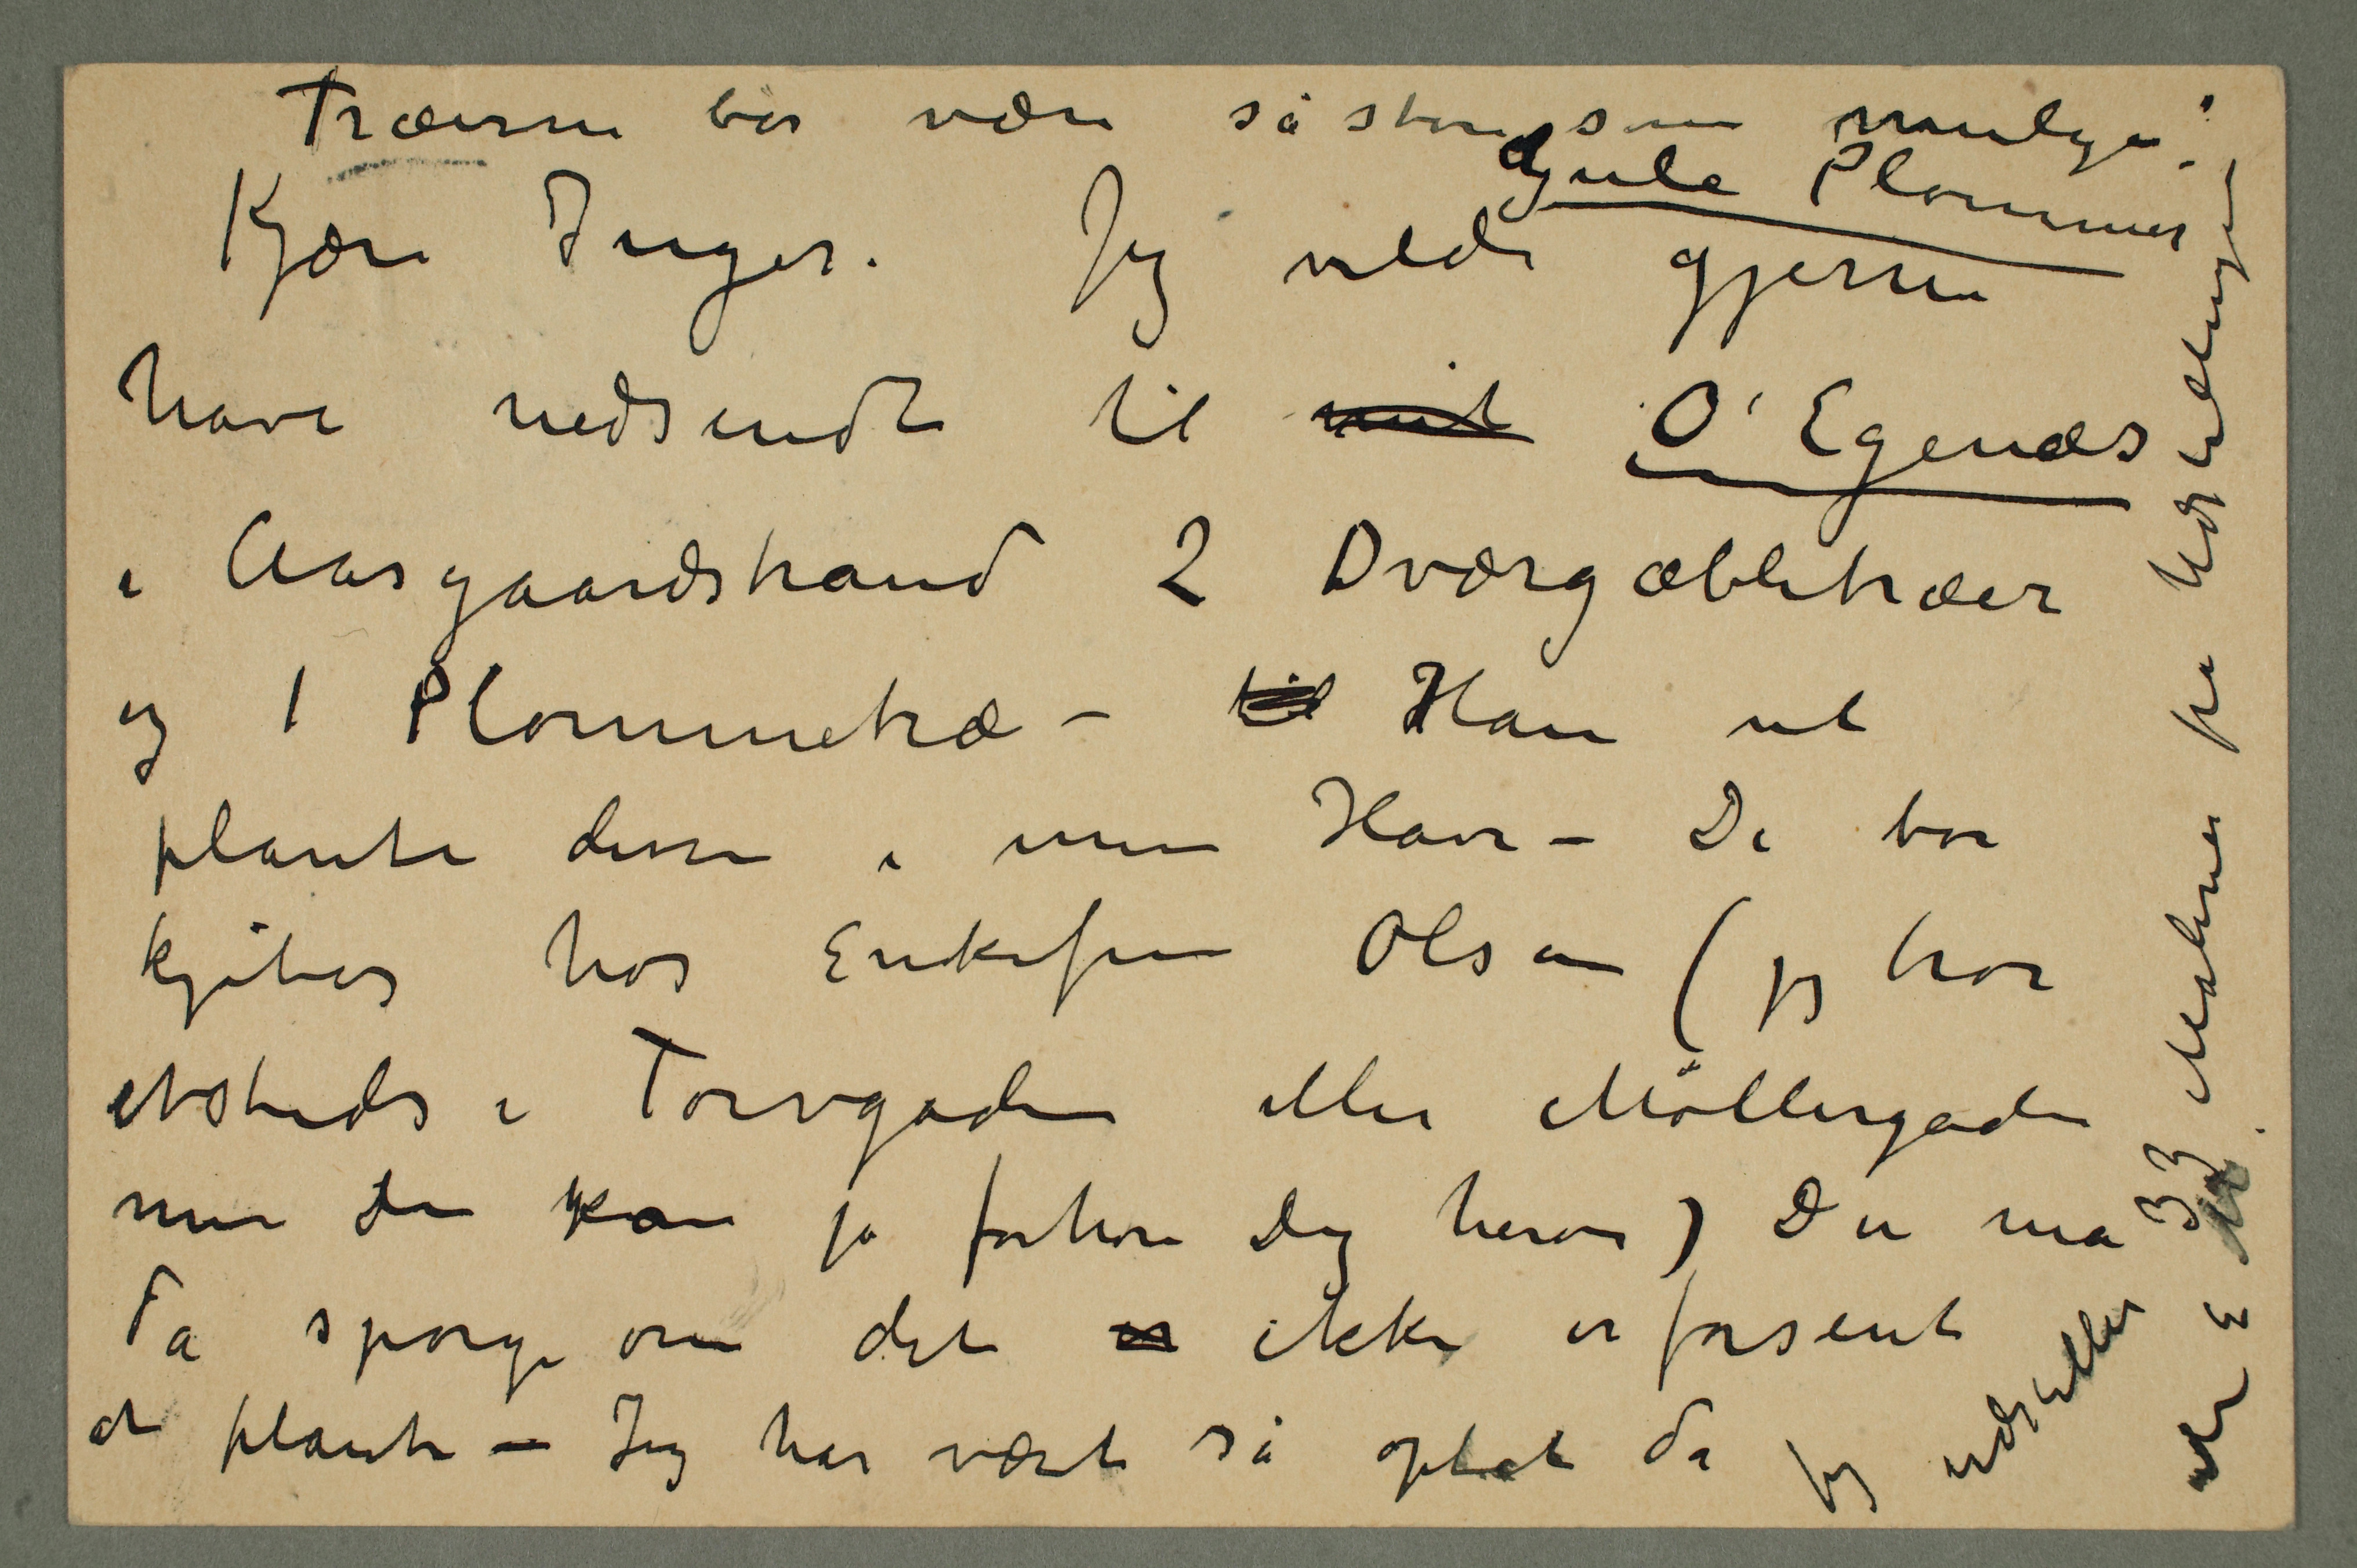 Træerne bør være så store som mulige.
gule Plommer
Kjære Inger. Jeg vilde gjerne
have nedsendt til mit O' Egenæs
i Aasgaardstrand 2 Dværgæbletræer
og 1 Plommetræ – til Han vil
plante disse i min Have – De bør
kjøbes hos Enkefru Olsen (jeg tror
etsteds i Torvgaden eller Möllergaden
men Du kan ja forhøre Dig herom) Du må
da spørge om det er ikke er forsent
at plante – Jeg har vært så optat da jeg udstiller
33 Malerier på Udstillingen
E M.